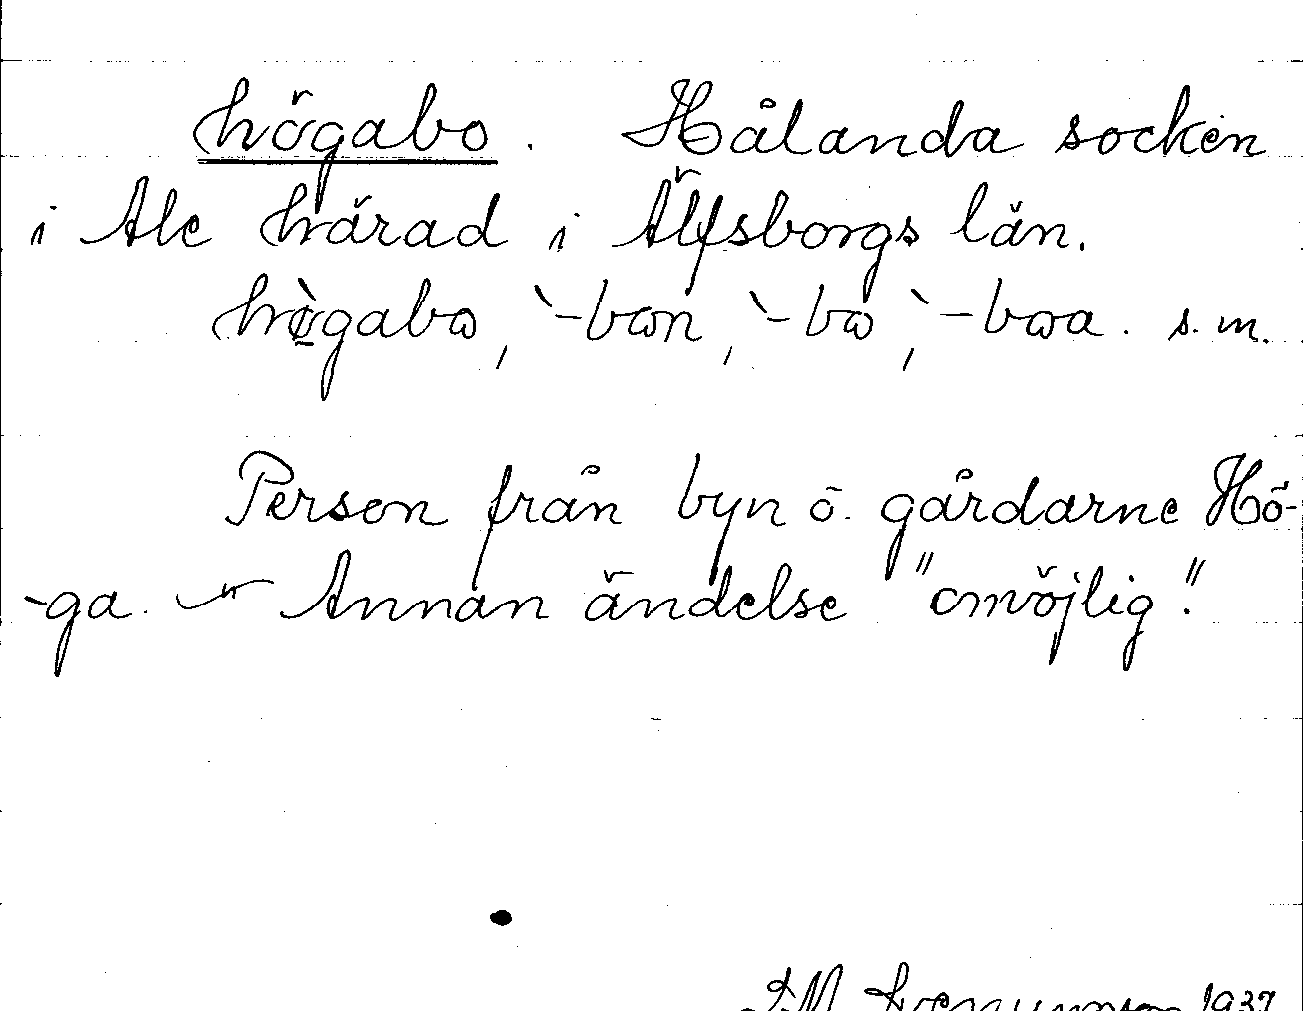 högabo. Hålanda socken
i Ale härad i Älfsborgs län.
hø̀gabω, `-bωn, `-bω, `-bωa. s. m.
Person från byn o. gårdarne Hö-
-ga. Annan ändelse "omöjlig".
1937